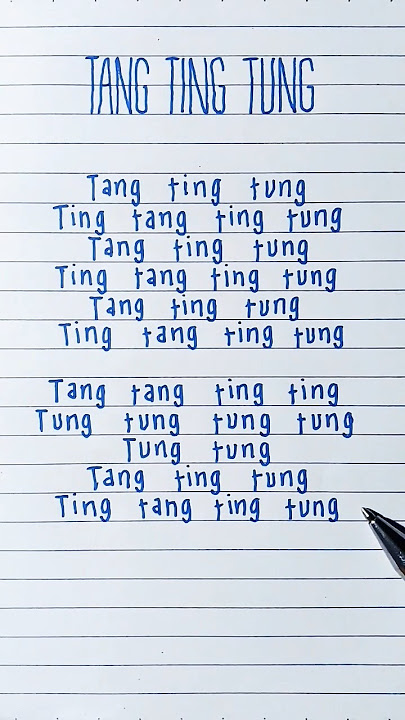 TANG TING TUNG
Tang ting tung
Ting tang ting tung
Tang ting tung
Ting tang ting tung
Tang ting tung
Ting tang ting tung
Tang tang ting ting
Tung tung tung tung
Tung tung
Tang ting tung
Ting tang ting tung